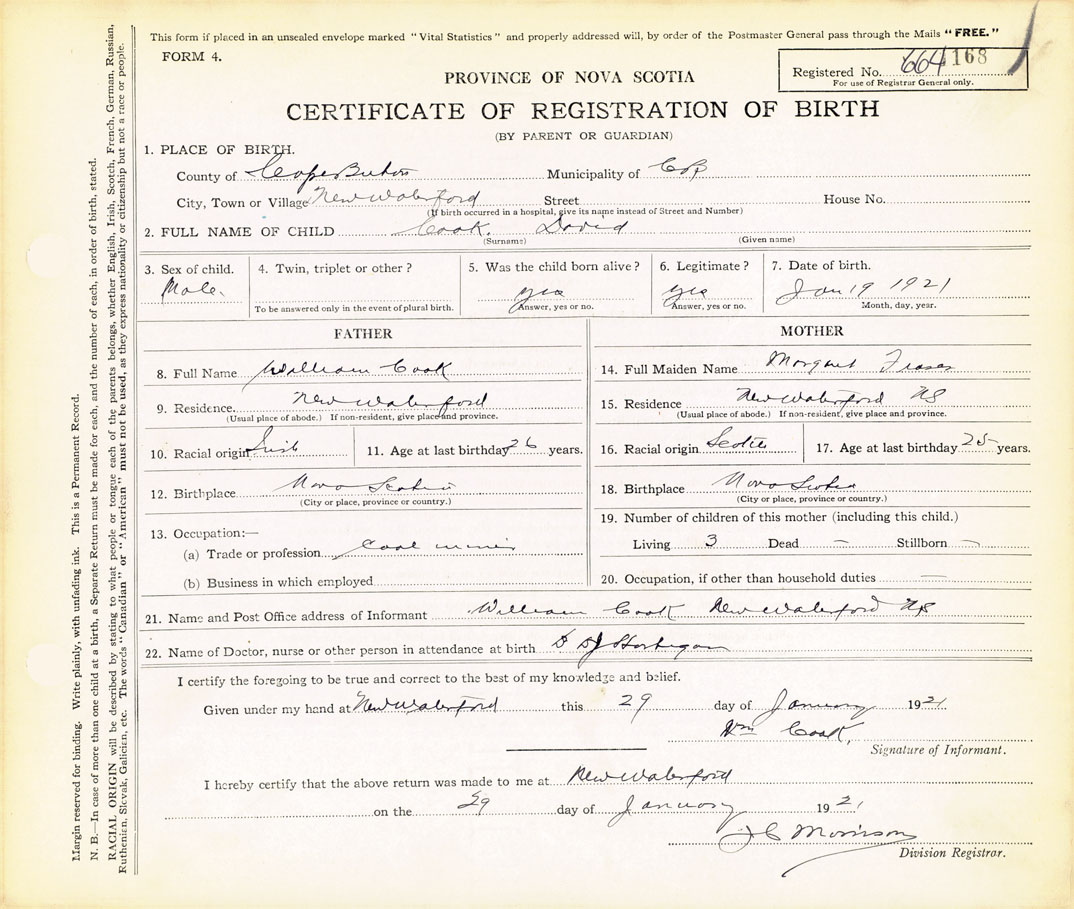 This form if placed in an unsealed envelope marked "Vital Statistics" and properly addressed will, by order of the Postmaster General pass through the Mails "FREE."
FORM 4.
Registered No. 664 168
For use of Registrar General only.
PROVINCE OF NOVA SCOTIA
CERTIFICATE OF REGISTRATION OF BIRTH
(BY PARENT OR GUARDIAN)
1. PLACE OF BIRTH.
County of Cape Breton Municipality of C B
City, Town or Village New Waterford Street House No.
(If birth occurred in a hospital, give its name instead of Street and Number)
2. FULL NAME OF CHILD Cook. David
(Surname) (Given name)
3. Sex of child. 4. Twin, triplet or other? 5. Was the child born alive? 6. Legitimate? 7. Date of birth.
Male. yes yes Jan 19 1921
To be answered only in the event of plural birth. Answer, yes or no. Answer, yes or no. Month, day, year.
FATHER
8. Full Name William Cook
9. Residence. New Waterford
(Usual place of abode.) If non-resident, give place and province.
10. Racial origin Irish 11. Age at last birthday 26 years.
12. Birthplace Nova Scotia
(City or place, province or country.)
13. Occupation:—
(a) Trade or profession Coal miner
(b) Business in which employed
MOTHER
14. Full Maiden Name Margaret Fraser
15. Residence New Waterford NS
(Usual place of abode.) If non-resident, give place and province.
16. Racial origin Scotch 17. Age at last birthday 25 years.
18. Birthplace Nova Scotia
(City or place, province or country.)
19. Number of children of this mother (including this child.)
Living 3 Dead — Stillborn —
20. Occupation, if other than household duties —
21. Name and Post Office address of Informant William Cook New Waterford NS
22. Name of Doctor, nurse or other person in attendance at birth
I certify the foregoing to be true and correct to the best of my knowledge and belief.
Given under my hand at New Waterford this 29 day of January 1921
Wm Cook,
Signature of Informant.
I hereby certify that the above return was made to me at New Waterford
on the 29 day of January 1921
J C Morrison
Division Registrar.
Margin reserved for binding. Write plainly, with unfading ink. This is a Permanent Record.
N. B.—In case of more than one child at a birth, a Separate Return must be made for each, and the number of each, in order of birth, stated.
RACIAL ORIGIN will be described by stating to what people or tongue each of the parents belongs, whether English, Irish, Scotch, French, German, Russian,
Ruthenian, Slovak, Galician, etc. The words "Canadian" or "American" must not be used, as they express nationality or citizenship but not a race or people.